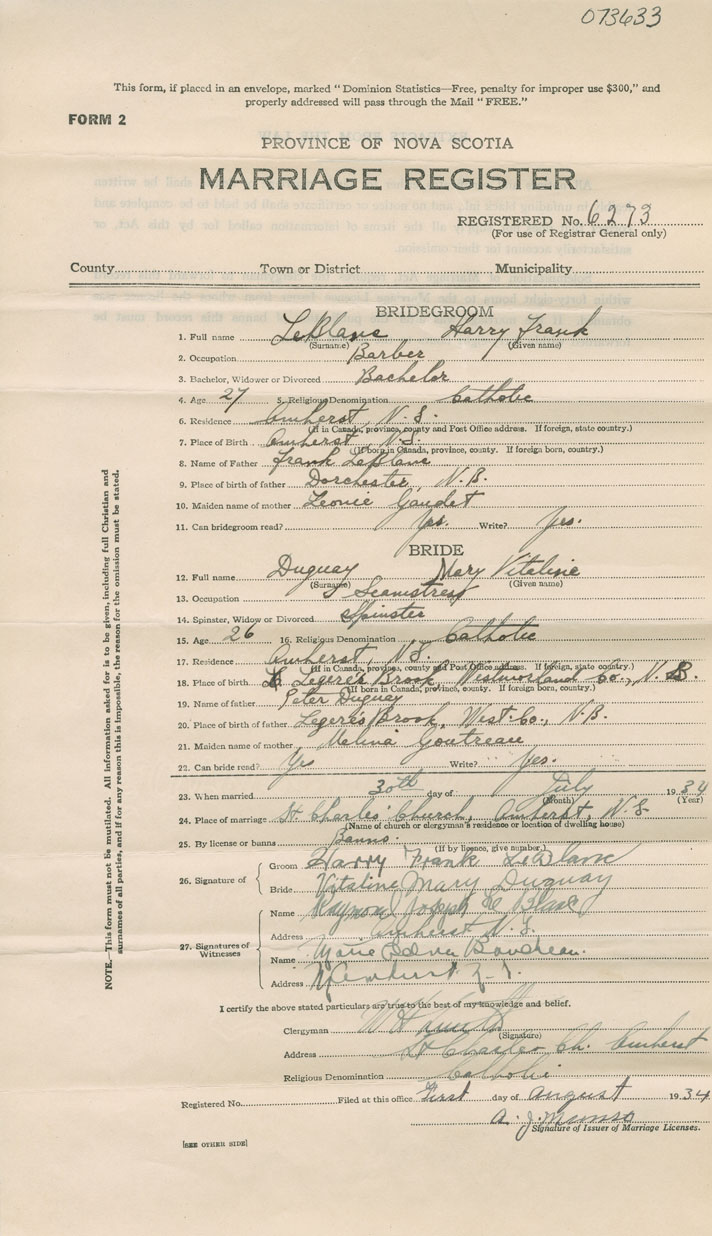 073633
This form, if placed in an envelope, marked "Dominion Statistics—Free, penalty for improper use $300," and
properly addressed will pass through the Mail "FREE."
FORM 2
PROVINCE OF NOVA SCOTIA
MARRIAGE REGISTER
REGISTERED No. 6273
(For use of Registrar General only)
County Town or District Municipality
BRIDEGROOM
1. Full name LeBlanc Harry Frank
(Surname) (Given name)
2. Occupation Barber
3. Bachelor, Widower or Divorced Bachelor
4. Age 27 5. Religious Denomination Catholic
6. Residence Amherst, N.S.
(If in Canada, province, county and Post Office address. If foreign, state country.)
7. Place of Birth Amherst, N.S.
(If born in Canada, province, county. If foreign born, country.)
8. Name of Father Frank LeBlanc
9. Place of birth of father Dorchester, N.B.
10. Maiden name of mother Leonie Gaudet
11. Can bridegroom read? Yes. Write? Yes.
BRIDE
12. Full name Duguay Mary Vitaline
(Surname) (Given name)
13. Occupation Seamstress
14. Spinster, Widow or Divorced Spinster
15. Age 26 16. Religious Denomination Catholic
17. Residence Amherst, N.S.
(If in Canada, province, county and Post Office address. If foreign, state country.)
18. Place of birth Legere's Brook, Westmorland Co., N.B.
(If born in Canada, province, county. If foreign born, country.)
19. Name of father Peter Duguay
20. Place of birth of father Legere's Brook, West. Co., N.B.
21. Maiden name of mother Melina Goutreau
22. Can bride read? Yes Write? Yes.
23. When married 30th day of July 1934
(Month) (Year)
24. Place of marriage St Charles' Church, Amherst, N.S
(Name of church or clergyman's residence or location of dwelling house)
25. By license or banns Banns.
(If by licence, give number.)
26. Signature of Groom Harry Frank LeBlanc
Bride Vitaline Mary Duguay
27. Signatures of Witnesses
Name Raymond Joseph Le Blanc
Address Amherst N.S.
Name Marie Boudreau.
Address Amherst N.S.
I certify the above stated particulars are true to the best of my knowledge and belief.
Clergyman
(Signature)
Address St Charles Ch. Amherst
Religious Denomination Catholic
Registered No. Filed at this office First day of August 1934
A. J. Munro
Signature of Issuer of Marriage Licenses.
[SEE OTHER SIDE]
NOTE.—This form must not be mutilated. All information asked for is to be given, including full Christian and
surnames of all parties, and if for any reason this is impossible, the reason for the omission must be stated.